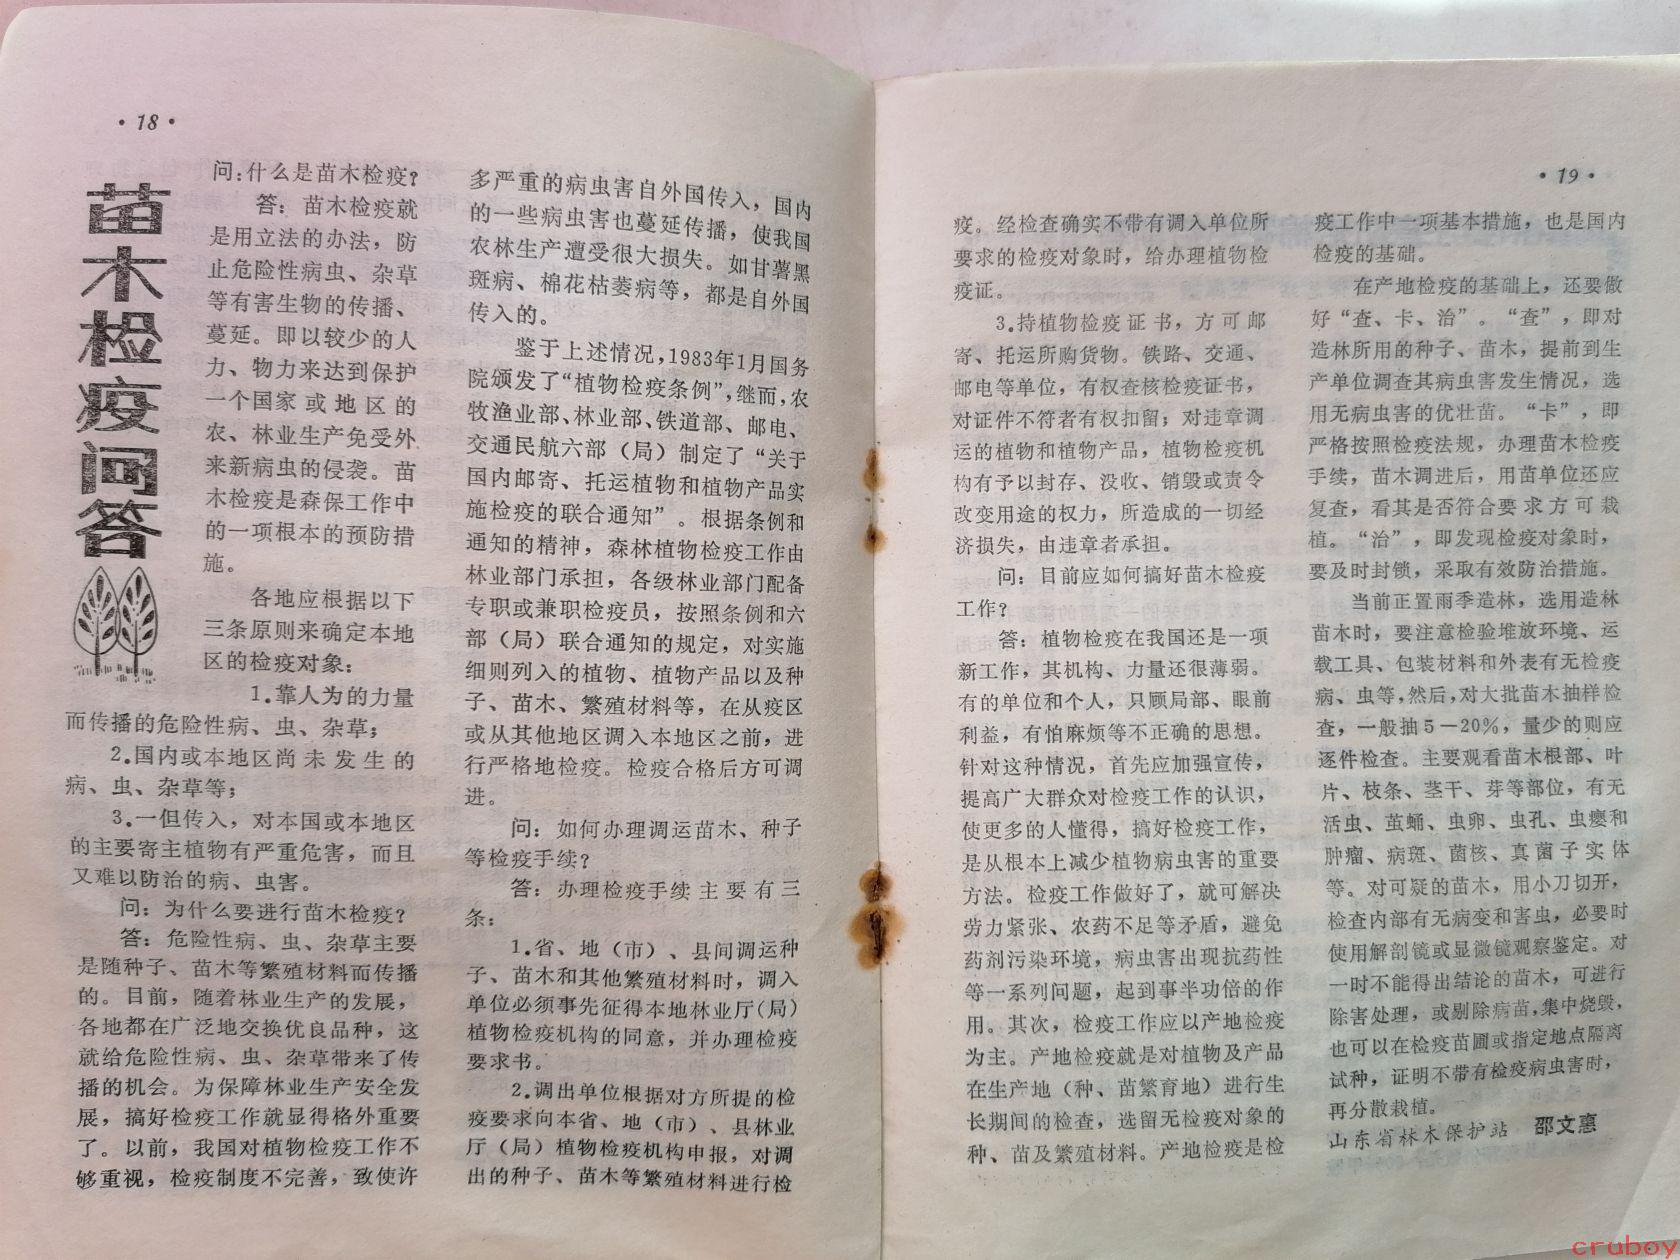 ·18·
苗木检疫问答
问:什么是苗木检疫?
答：苗木检疫就
是用立法的办法，防
止危险性病虫、杂草
等有害生物的传播、
蔓延。即以较少的人
力、物力来达到保护
一个国家或地区的
农、林业生产免受外
来新病虫的侵袭。苗
木检疫是森保工作中
的一项根本的预防措
施。
各地应根据以下
三条原则来确定本地
区的检疫对象：
1.靠人为的力量
而传播的危险性病、虫、杂草；
2.国内或本地区尚未发生的
病、虫、杂草等；
3.一但传入，对本国或本地区
的主要寄主植物有严重危害，而且
又难以防治的病、虫害。
问：为什么要进行苗木检疫？
答：危险性病、虫、杂草主要
是随种子、苗木等繁殖材料而传播
的。目前，随着林业生产的发展，
各地都在广泛地交换优良品种，这
就给危险性病、虫、杂草带来了传
播的机会。为保障林业生产安全发
展，搞好检疫工作就显得格外重要
了。以前，我国对植物检疫工作不
够重视，检疫制度不完善，致使许
多严重的病虫害自外国传入，国内
的一些病虫害也蔓延传播，使我国
农林生产遭受很大损失。如甘薯黑
斑病、棉花枯萎病等，都是自外国
传入的。
鉴于上述情况，1983年1月国务
院颁发了“植物检疫条例”，继而，农
牧渔业部、林业部、铁道部、邮电、
交通民航六部（局）制定了“关于
国内邮寄、托运植物和植物产品实
施检疫的联合通知”。根据条例和
通知的精神，森林植物检疫工作由
林业部门承担，各级林业部门配备
专职或兼职检疫员，按照条例和六
部（局）联合通知的规定，对实施
细则列入的植物、植物产品以及种
子、苗木、繁殖材料等，在从疫区
或从其他地区调入本地区之前，进
行严格地检疫。检疫合格后方可调
进。
问：如何办理调运苗木、种子
等检疫手续？
答：办理检疫手续主要有三
条：
1.省、地（市）、县间调运种
子、苗木和其他繁殖材料时，调入
单位必须事先征得本地林业厅（局）
植物检疫机构的同意，并办理检疫
要求书。
2.调出单位根据对方所提的检
疫要求向本省、地（市）、县林业
厅（局）植物检疫机构申报，对调
出的种子、苗木等繁殖材料进行检
·19·
疫。经检查确实不带有调入单位所
要求的检疫对象时，给办理植物检
疫证。
3.持植物检疫证书，方可邮
寄、托运所购货物。铁路、交通、
邮电等单位，有权查核检疫证书，
对证件不符者有权扣留；对违章调
运的植物和植物产品，植物检疫机
构有予以封存、没收、销毁或责令
改变用途的权力，所造成的一切经
济损失，由违章者承担。
问：目前应如何搞好苗木检疫
工作？
答：植物检疫在我国还是一项
新工作，其机构、力量还很薄弱。
有的单位和个人，只顾局部、眼前
利益，有怕麻烦等不正确的思想。
针对这种情况，首先应加强宣传，
提高广大群众对检疫工作的认识，
使更多的人懂得，搞好检疫工作，
是从根本上减少植物病虫害的重要
方法。检疫工作做好了，就可解决
劳力紧张、农药不足等矛盾，避免
药剂污染环境，病虫害出现抗药性
等一系列问题，起到事半功倍的作
用。其次，检疫工作应以产地检疫
为主。产地检疫就是对植物及产品
在生产地（种、苗繁育地）进行生
长期间的检查，选留无检疫对象的
种、苗及繁殖材料。产地检疫是检
疫工作中一项基本措施，也是国内
检疫的基础。
在产地检疫的基础上，还要做
好“查、卡、治”。“查”，即对
造林所用的种子、苗木，提前到生
产单位调查其病虫害发生情况，选
用无病虫害的优壮苗。“卡”，即
严格按照检疫法规，办理苗木检疫
手续，苗木调进后，用苗单位还应
复查，看其是否符合要求方可栽
植。“治”，即发现检疫对象时，
要及时封锁，采取有效防治措施。
当前正置雨季造林，选用造林
苗木时，要注意检验堆放环境、运
载工具、包装材料和外表有无检疫
病、虫等，然后，对大批苗木抽样检
查，一般抽5－20%，量少的则应
逐件检查。主要观看苗木根部、叶
片、枝条、茎干、芽等部位，有无
活虫、茧蛹、虫卵、虫孔、虫瘿和
肿瘤、病斑、菌核、真菌子实体
等。对可疑的苗木，用小刀切开，
检查内部有无病变和害虫，必要时
使用解剖镜或显微镜观察鉴定。对
一时不能得出结论的苗木，可进行
除害处理，或剔除病苗，集中烧毁，
也可以在检疫苗圃或指定地点隔离
试种，证明不带有检疫病虫害时，
再分散栽植。
山东省林木保护站 邵文惠
cruboy